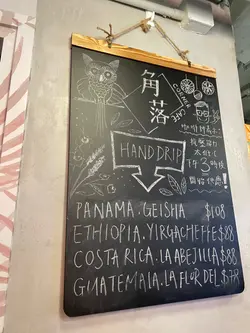 角落
CORNER CAFE
HAND DRIP
下午3時後
開始供應!
PANAMA.GEISHA $108
ETHIOPIA.YIRGACHEFFE $88
COSTA RICA.LA ABEJILLA $88
GUATEMALA.LA FLOR DEL $78